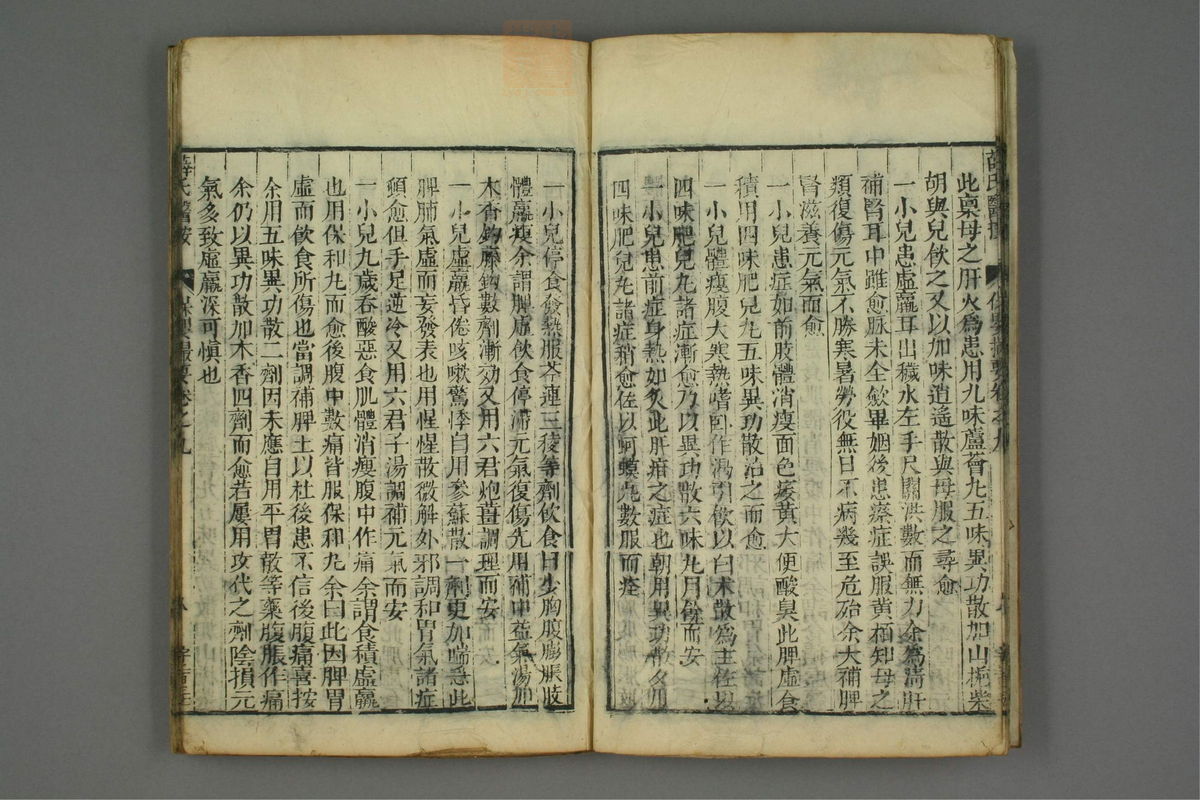 此稟母之肝火為患用九味蘆薈丸五味異功散加山梔柴
胡與兒飲之又以加味逍遙散與母服之尋愈
一小兒患虛羸耳出穢水左手尺關洪數而無力余為清肝
補腎耳中雖愈脉未全斂畢姻後患瘵症誤服黄柏知母之
類復傷元氣不勝寒暑勞役無日不病幾至危殆余大補脾
腎滋養元氣而愈
一小兒患症如前肢體消瘦面色痿黄大便酸臭此脾虛食
積用四味肥兒丸五味異功散治之而愈
一小兒體瘦腹大寒熱嗜卧作渴引飲以白术散為主佐以
四味肥兒丸諸症漸愈乃以異功散六味丸月餘而安
一小兒患前症身熱如炙此肝疳之症也朝用異功散夕用
四味肥兒丸諸症稍愈佐以蚵蟆丸數服而痊
一小兒停食發熱服芩連三稜等劑飲食日少胸腹膨脹肢
體羸瘦余謂脾虛飲食停滯元氣復傷先用補中益氣湯加
木香鈎藤鈎數劑漸効又用六君炮薑調理而安
一小兒虛羸昏倦咳嗽驚悸自用參蘇散一劑更加喘急此
脾肺氣虛而妄發表也用惺惺散微解外邪調和胃氣諸症
頓愈但手足逆冷又用六君子湯調補元氣而安
一小兒九歲吞酸惡食肌體消瘦腹中作痛余謂食積虛羸
也用保和丸而愈後腹中數痛皆服保和丸余曰此因脾胃
虛而飲食所傷也當調補脾土以杜後患不信後腹痛喜按
余用五味異功散二劑因未應自用平胃散等藥腹脹作痛
余仍以異功散加木香四劑而愈若屢用攻伐之劑陰損元
氣多致虛羸深可慎也
薛氏醫按 保嬰撮要卷之九